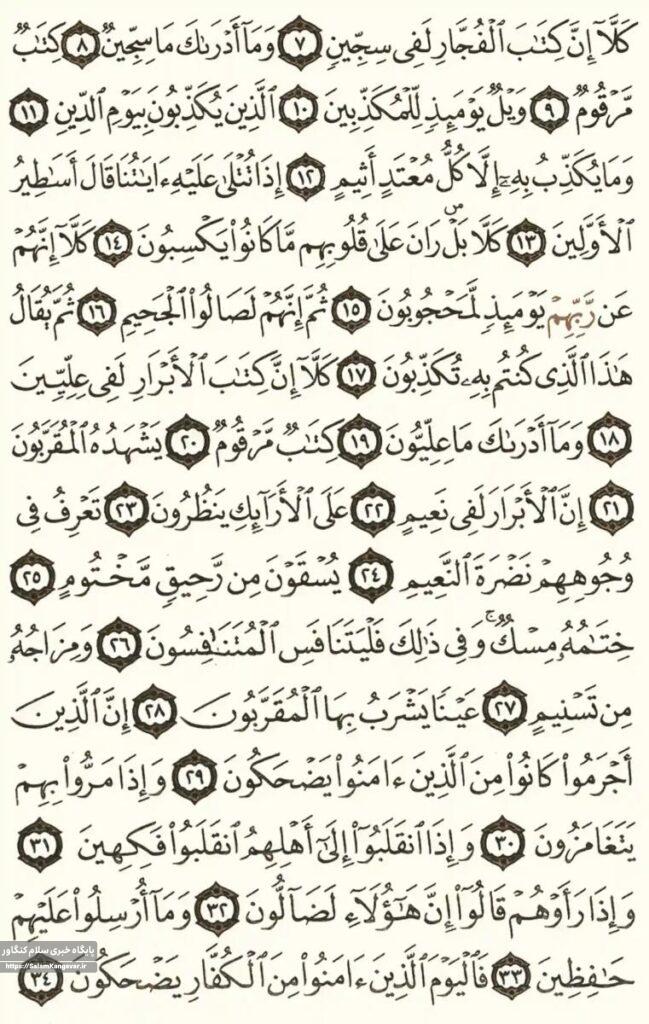 كَلَّآ إِنَّ كِتَٰبَ ٱلْفُجَّارِ لَفِى سِجِّينٍ ٧ وَمَآ أَدْرَىٰكَ مَا سِجِّينٌ ٨ كِتَٰبٌ
مَّرْقُومٌ ٩ وَيْلٌ يَوْمَئِذٍ لِّلْمُكَذِّبِينَ ١٠ ٱلَّذِينَ يُكَذِّبُونَ بِيَوْمِ ٱلدِّينِ ١١
وَمَا يُكَذِّبُ بِهِۦٓ إِلَّا كُلُّ مُعْتَدٍ أَثِيمٍ ١٢ إِذَا تُتْلَىٰ عَلَيْهِ ءَايَٰتُنَا قَالَ أَسَٰطِيرُ
ٱلْأَوَّلِينَ ١٣ كَلَّا بَلْ ۜ رَانَ عَلَىٰ قُلُوبِهِم مَّا كَانُوا۟ يَكْسِبُونَ ١٤ كَلَّآ إِنَّهُمْ
عَن رَّبِّهِمْ يَوْمَئِذٍ لَّمَحْجُوبُونَ ١٥ ثُمَّ إِنَّهُمْ لَصَالُوا۟ ٱلْجَحِيمِ ١٦ ثُمَّ يُقَالُ
هَٰذَا ٱلَّذِى كُنتُم بِهِۦ تُكَذِّبُونَ ١٧ كَلَّآ إِنَّ كِتَٰبَ ٱلْأَبْرَارِ لَفِى عِلِّيِّينَ
١٨ وَمَآ أَدْرَىٰكَ مَا عِلِّيُّونَ ١٩ كِتَٰبٌ مَّرْقُومٌ ٢٠ يَشْهَدُهُ ٱلْمُقَرَّبُونَ
٢١ إِنَّ ٱلْأَبْرَارَ لَفِى نَعِيمٍ ٢٢ عَلَى ٱلْأَرَآئِكِ يَنظُرُونَ ٢٣ تَعْرِفُ فِى
وُجُوهِهِمْ نَضْرَةَ ٱلنَّعِيمِ ٢٤ يُسْقَوْنَ مِن رَّحِيقٍ مَّخْتُومٍ ٢٥
خِتَٰمُهُۥ مِسْكٌ ۚ وَفِى ذَٰلِكَ فَلْيَتَنَافَسِ ٱلْمُتَنَٰفِسُونَ ٢٦ وَمِزَاجُهُۥ
مِن تَسْنِيمٍ ٢٧ عَيْنًا يَشْرَبُ بِهَا ٱلْمُقَرَّبُونَ ٢٨ إِنَّ ٱلَّذِينَ
أَجْرَمُوا۟ كَانُوا۟ مِنَ ٱلَّذِينَ ءَامَنُوا۟ يَضْحَكُونَ ٢٩ وَإِذَا مَرُّوا۟ بِهِمْ
يَتَغَامَزُونَ ٣٠ وَإِذَا ٱنقَلَبُوٓا۟ إِلَىٰٓ أَهْلِهِمُ ٱنقَلَبُوا۟ فَكِهِينَ ٣١
وَإِذَا رَأَوْهُمْ قَالُوٓا۟ إِنَّ هَٰٓؤُلَآءِ لَضَآلُّونَ ٣٢ وَمَآ أُرْسِلُوا۟ عَلَيْهِمْ
حَٰفِظِينَ ٣٣ فَٱلْيَوْمَ ٱلَّذِينَ ءَامَنُوا۟ مِنَ ٱلْكُفَّارِ يَضْحَكُونَ ٣٤
پایگاه خبری سلام کنگاور
https://SalamKangavar.ir